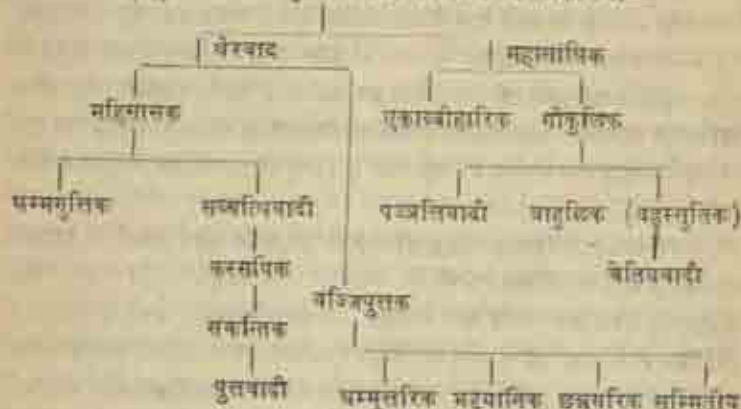 थेरवाद महासांघिक
महिंसासक एकाब्बोहारिक गोकुलिक
धम्मगुत्तिक सब्बत्थिवादी पञ्ञत्तिवादी बाहुलिक (बहुस्सुतिक)
कस्सपिक चेतियवादी
संकन्तिक वज्जिपुत्तक
सुत्तवादी धम्मुत्तरिक भद्रयानिक छन्नगरिक सम्मितीय